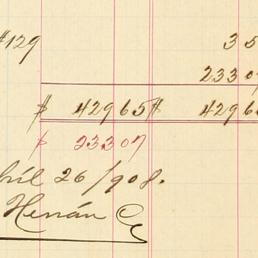 #129 35
23307
$ 42965 $ 4296
$ 23307
bríl 26/908.
Hernán C